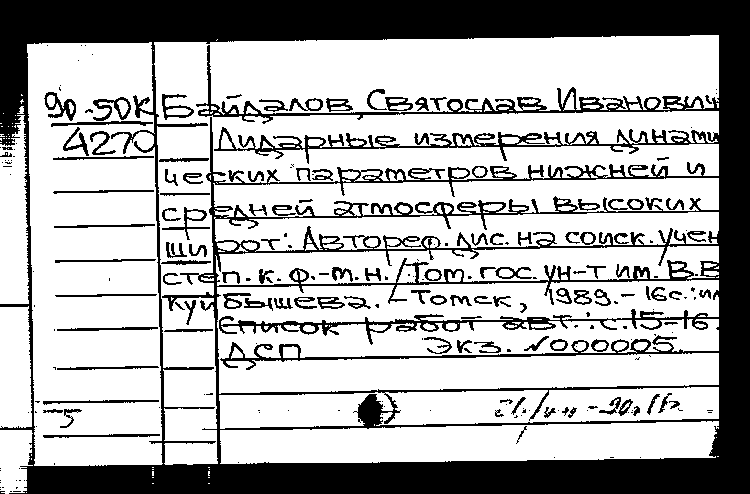 90-5DK Байдалов, Святослав Иванович
4270 Лидарные измерения динами
ческих параметров нижней и
средней атмосферы высоких
широт: Автореф. дис. на соиск. учен
степ. к. ф.-м. н. / Том. гос. ун-т им. В.В
Куйбышева. – Томск, 1989. – 16с.: ил
Список работ авт.: с.15-16.
ДСП Экз. №000005.
5